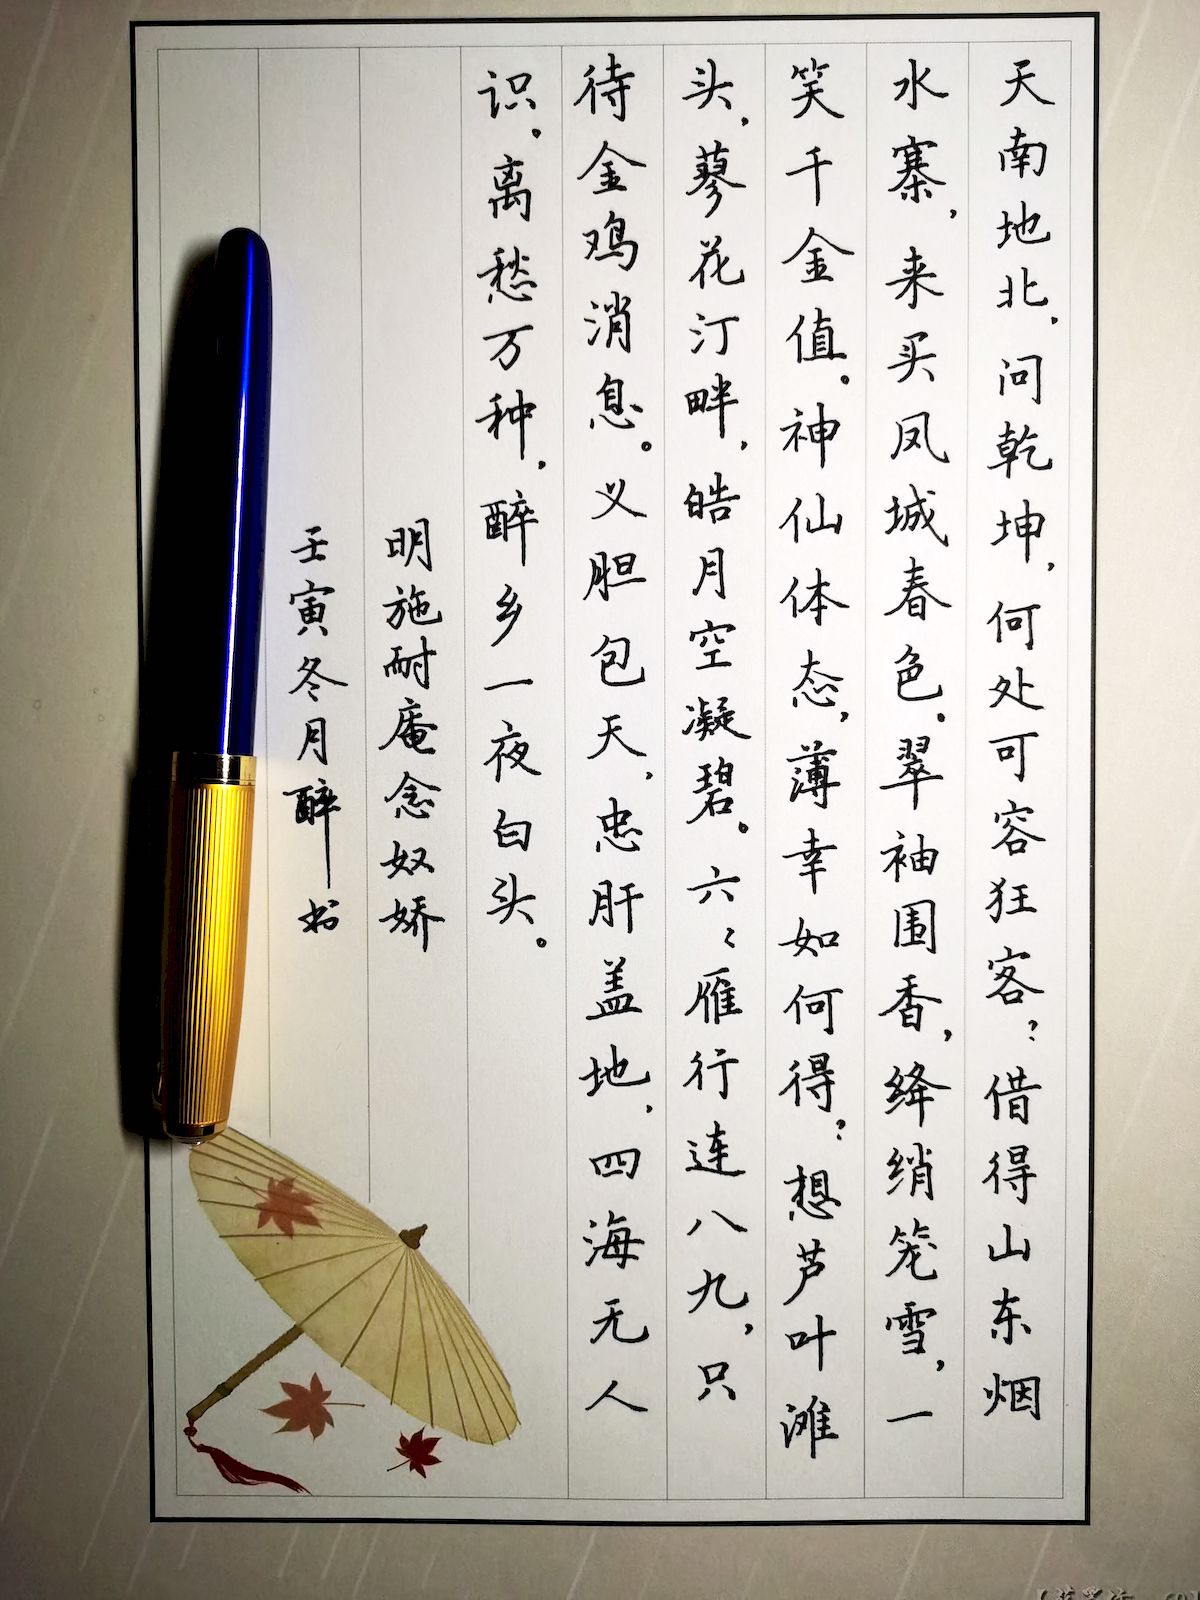 天南地北，问乾坤，何处可容狂客？借得山东烟
水寨，来买凤城春色。翠袖围香，绛绡笼雪，一
笑千金值。神仙体态，薄幸如何得？想芦叶滩
头，蓼花汀畔，皓月空凝碧。六六雁行连八九，只
待金鸡消息。义胆包天，忠肝盖地，四海无人
识。离愁万种，醉乡一夜白头。
明施耐庵念奴娇
壬寅冬月醉书